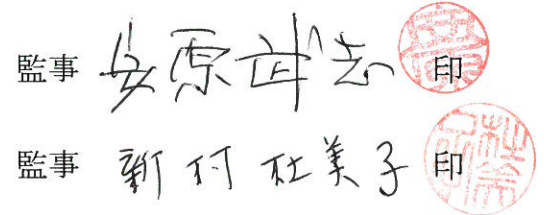 監事 安原武志 印
監事 新村杜美子 印